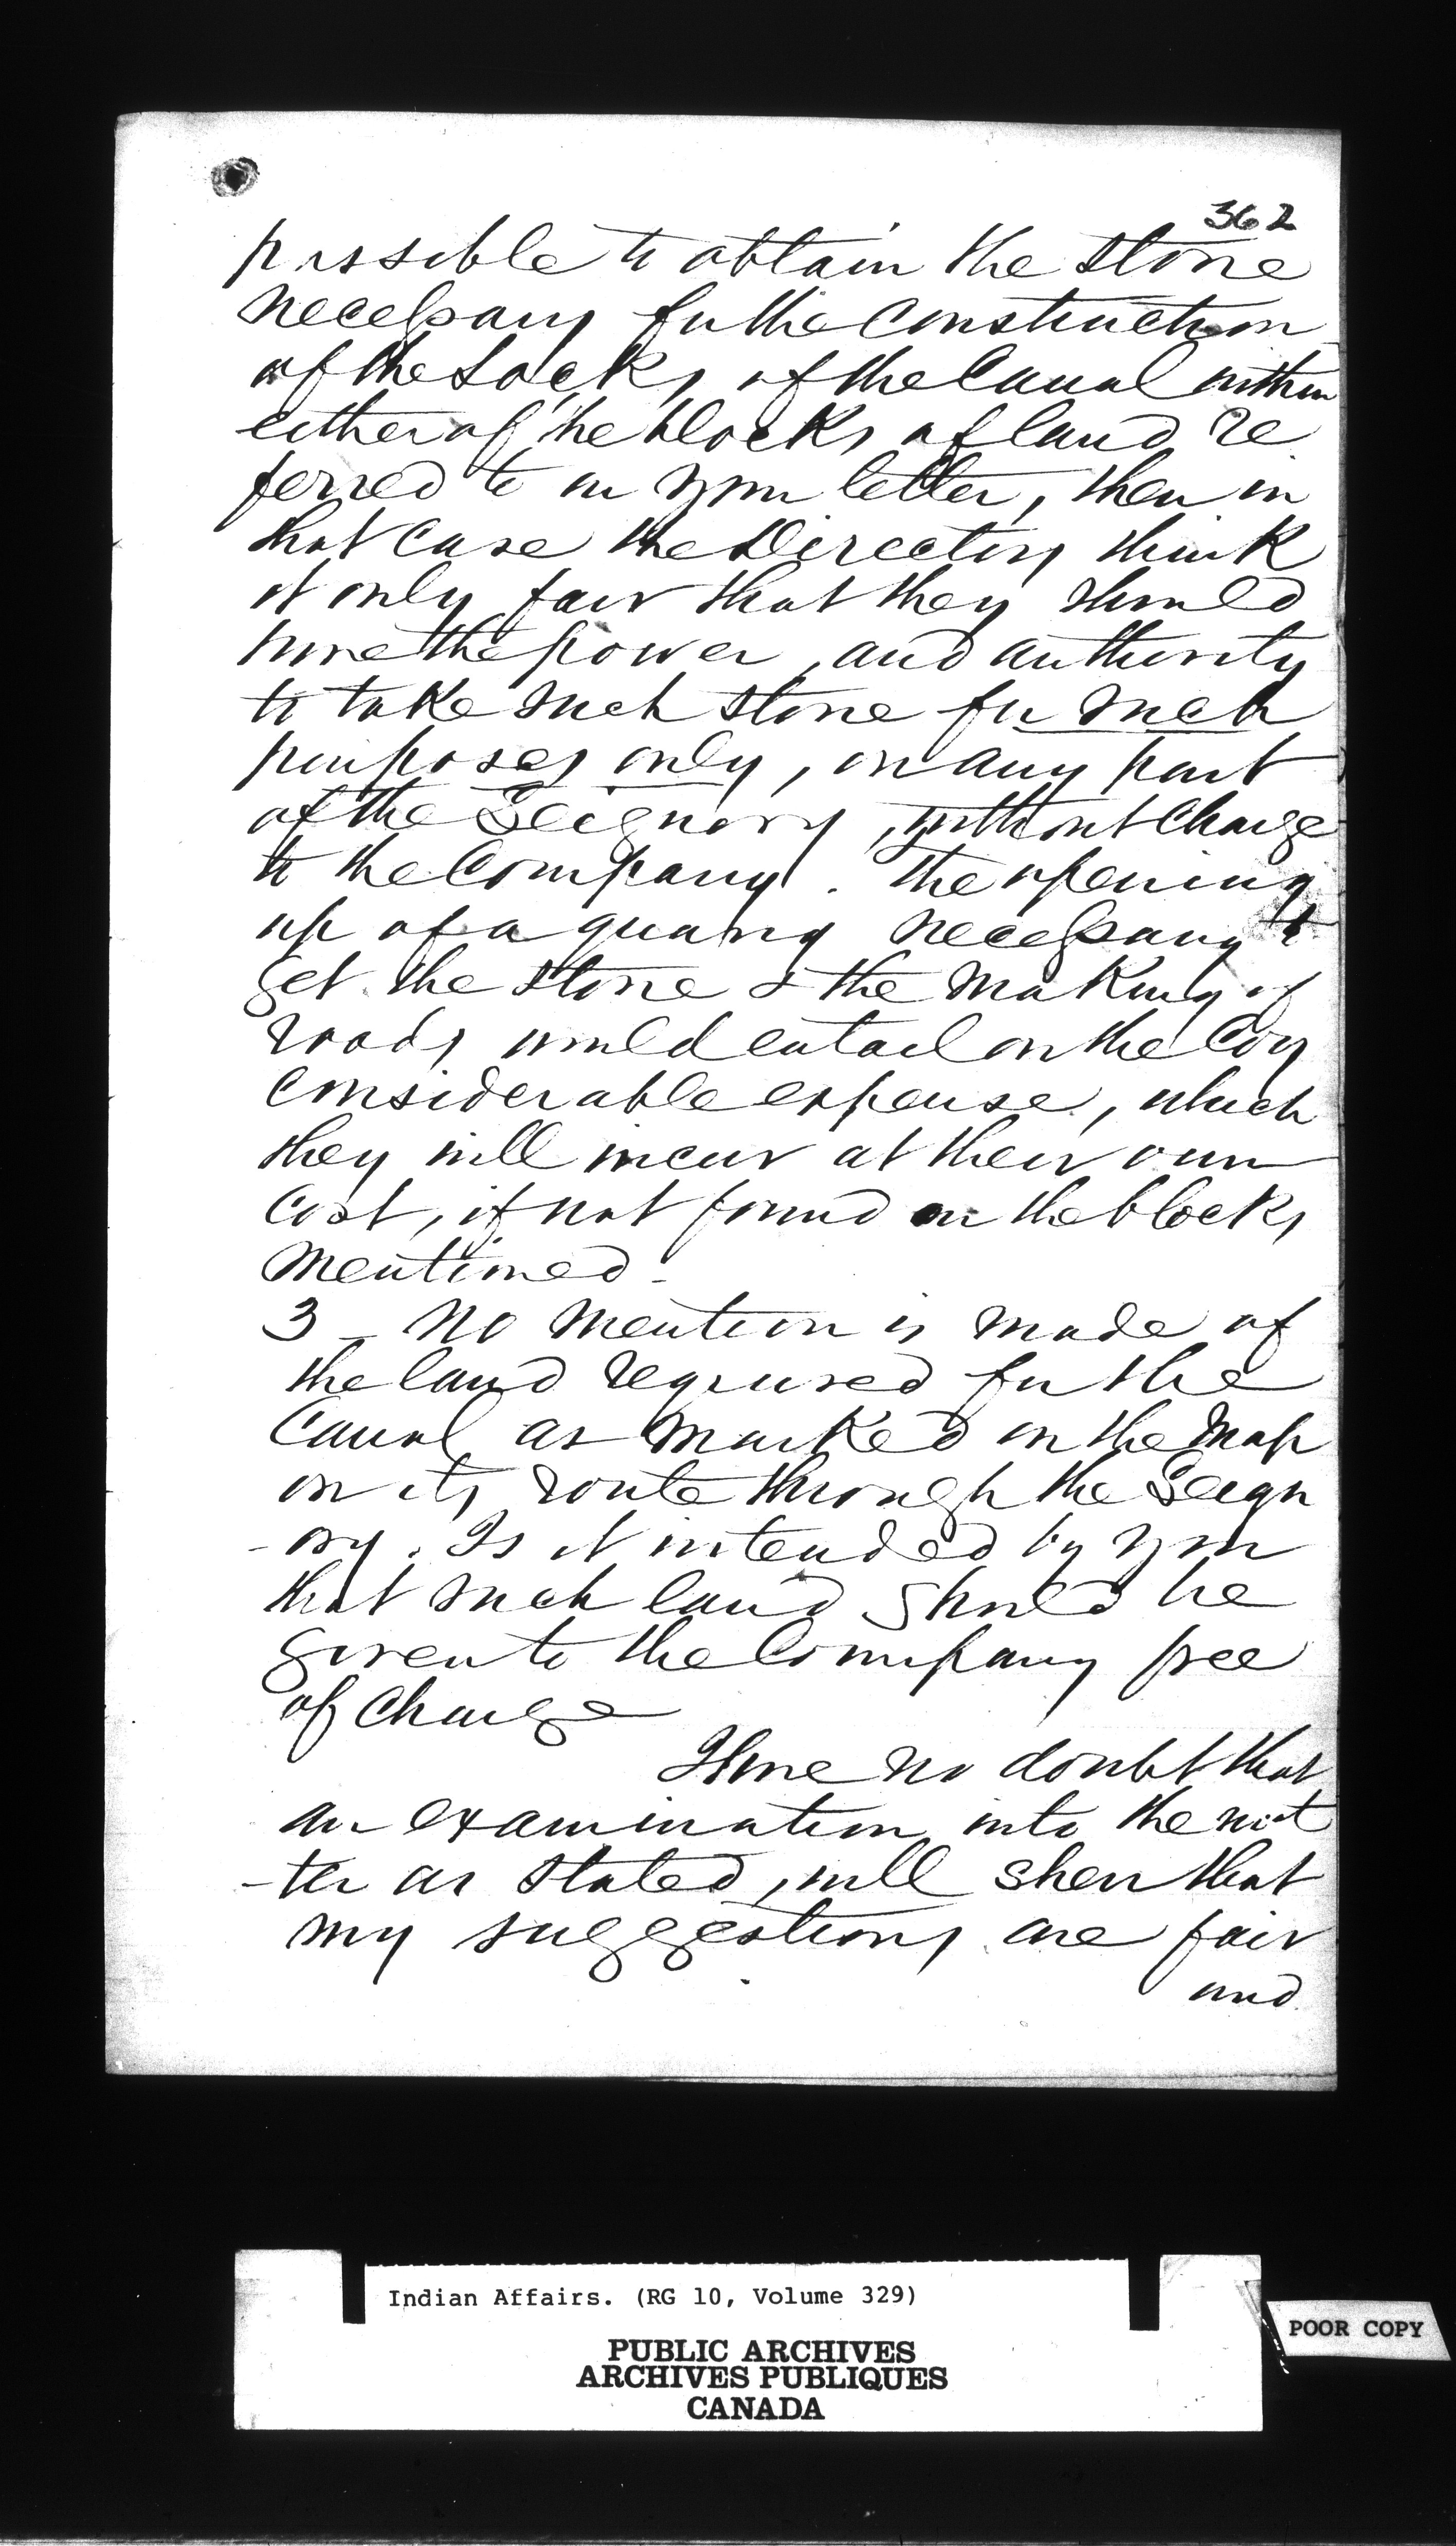 362
possible to obtain the stone
necessary for the construction
of the Locks of the Canal within
either of the blocks of land re
ferred to in your letter, then in
that case the Directors think
it only fair that they should
have the power, and authority
to take such stone for such
purposes only, on any part
of the Seignory, without charge
to the Company. The opening
up of a quarry necessary to
get the stone & the making of
roads would entail on the Coy
considerable expense, which
they will incur at their own
cost, if not found on the blocks
mentioned -
3 - No mention is made of
the land required for the
Canal as marked on the map
on its route through the Seign
-ory. Is it intended by you
that such land should be
given to the Company free
of charge
I have no doubt that
an examination into the mat
-ter as stated, will shew that
my suggestions are fair
and
Indian Affairs. (RG 10, Volume 329)
PUBLIC ARCHIVES
ARCHIVES PUBLIQUES
CANADA
POOR COPY